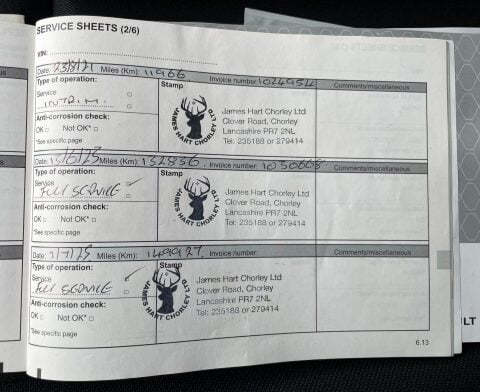 SERVICE SHEETS (2/6)
VIN:
Date: 23/8/21 Miles (Km): 11966 Invoice number: 1024954 Comments/miscellaneous
Type of operation: Stamp
Service
INTRIM.
Anti-corrosion check:
OK Not OK*
*See specific page
JAMES HART CHORLEY LTD
James Hart Chorley Ltd
Clover Road, Chorley
Lancashire PR7 2NL
Tel: 235188 or 279414
Date: 15/6/23 Miles (Km): 132836 Invoice number: 1030665 Comments/miscellaneous
Type of operation: Stamp
Service
FULL SERVICE
Anti-corrosion check:
OK Not OK*
*See specific page
JAMES HART CHORLEY LTD
James Hart Chorley Ltd
Clover Road, Chorley
Lancashire PR7 2NL
Tel: 235188 or 279414
Date: 1/7/25 Miles (Km): 149927 Invoice number: Comments/miscellaneous
Type of operation: Stamp
Service
Full SERVICE
Anti-corrosion check:
OK Not OK*
*See specific page
JAMES HART CHORLEY LTD
James Hart Chorley Ltd
Clover Road, Chorley
Lancashire PR7 2NL
Tel: 235188 or 279414
6.13